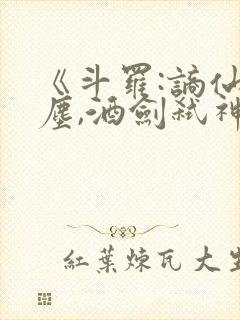 《斗羅:謫仙
塵,酒劍弒神
紅葉煉瓦 大